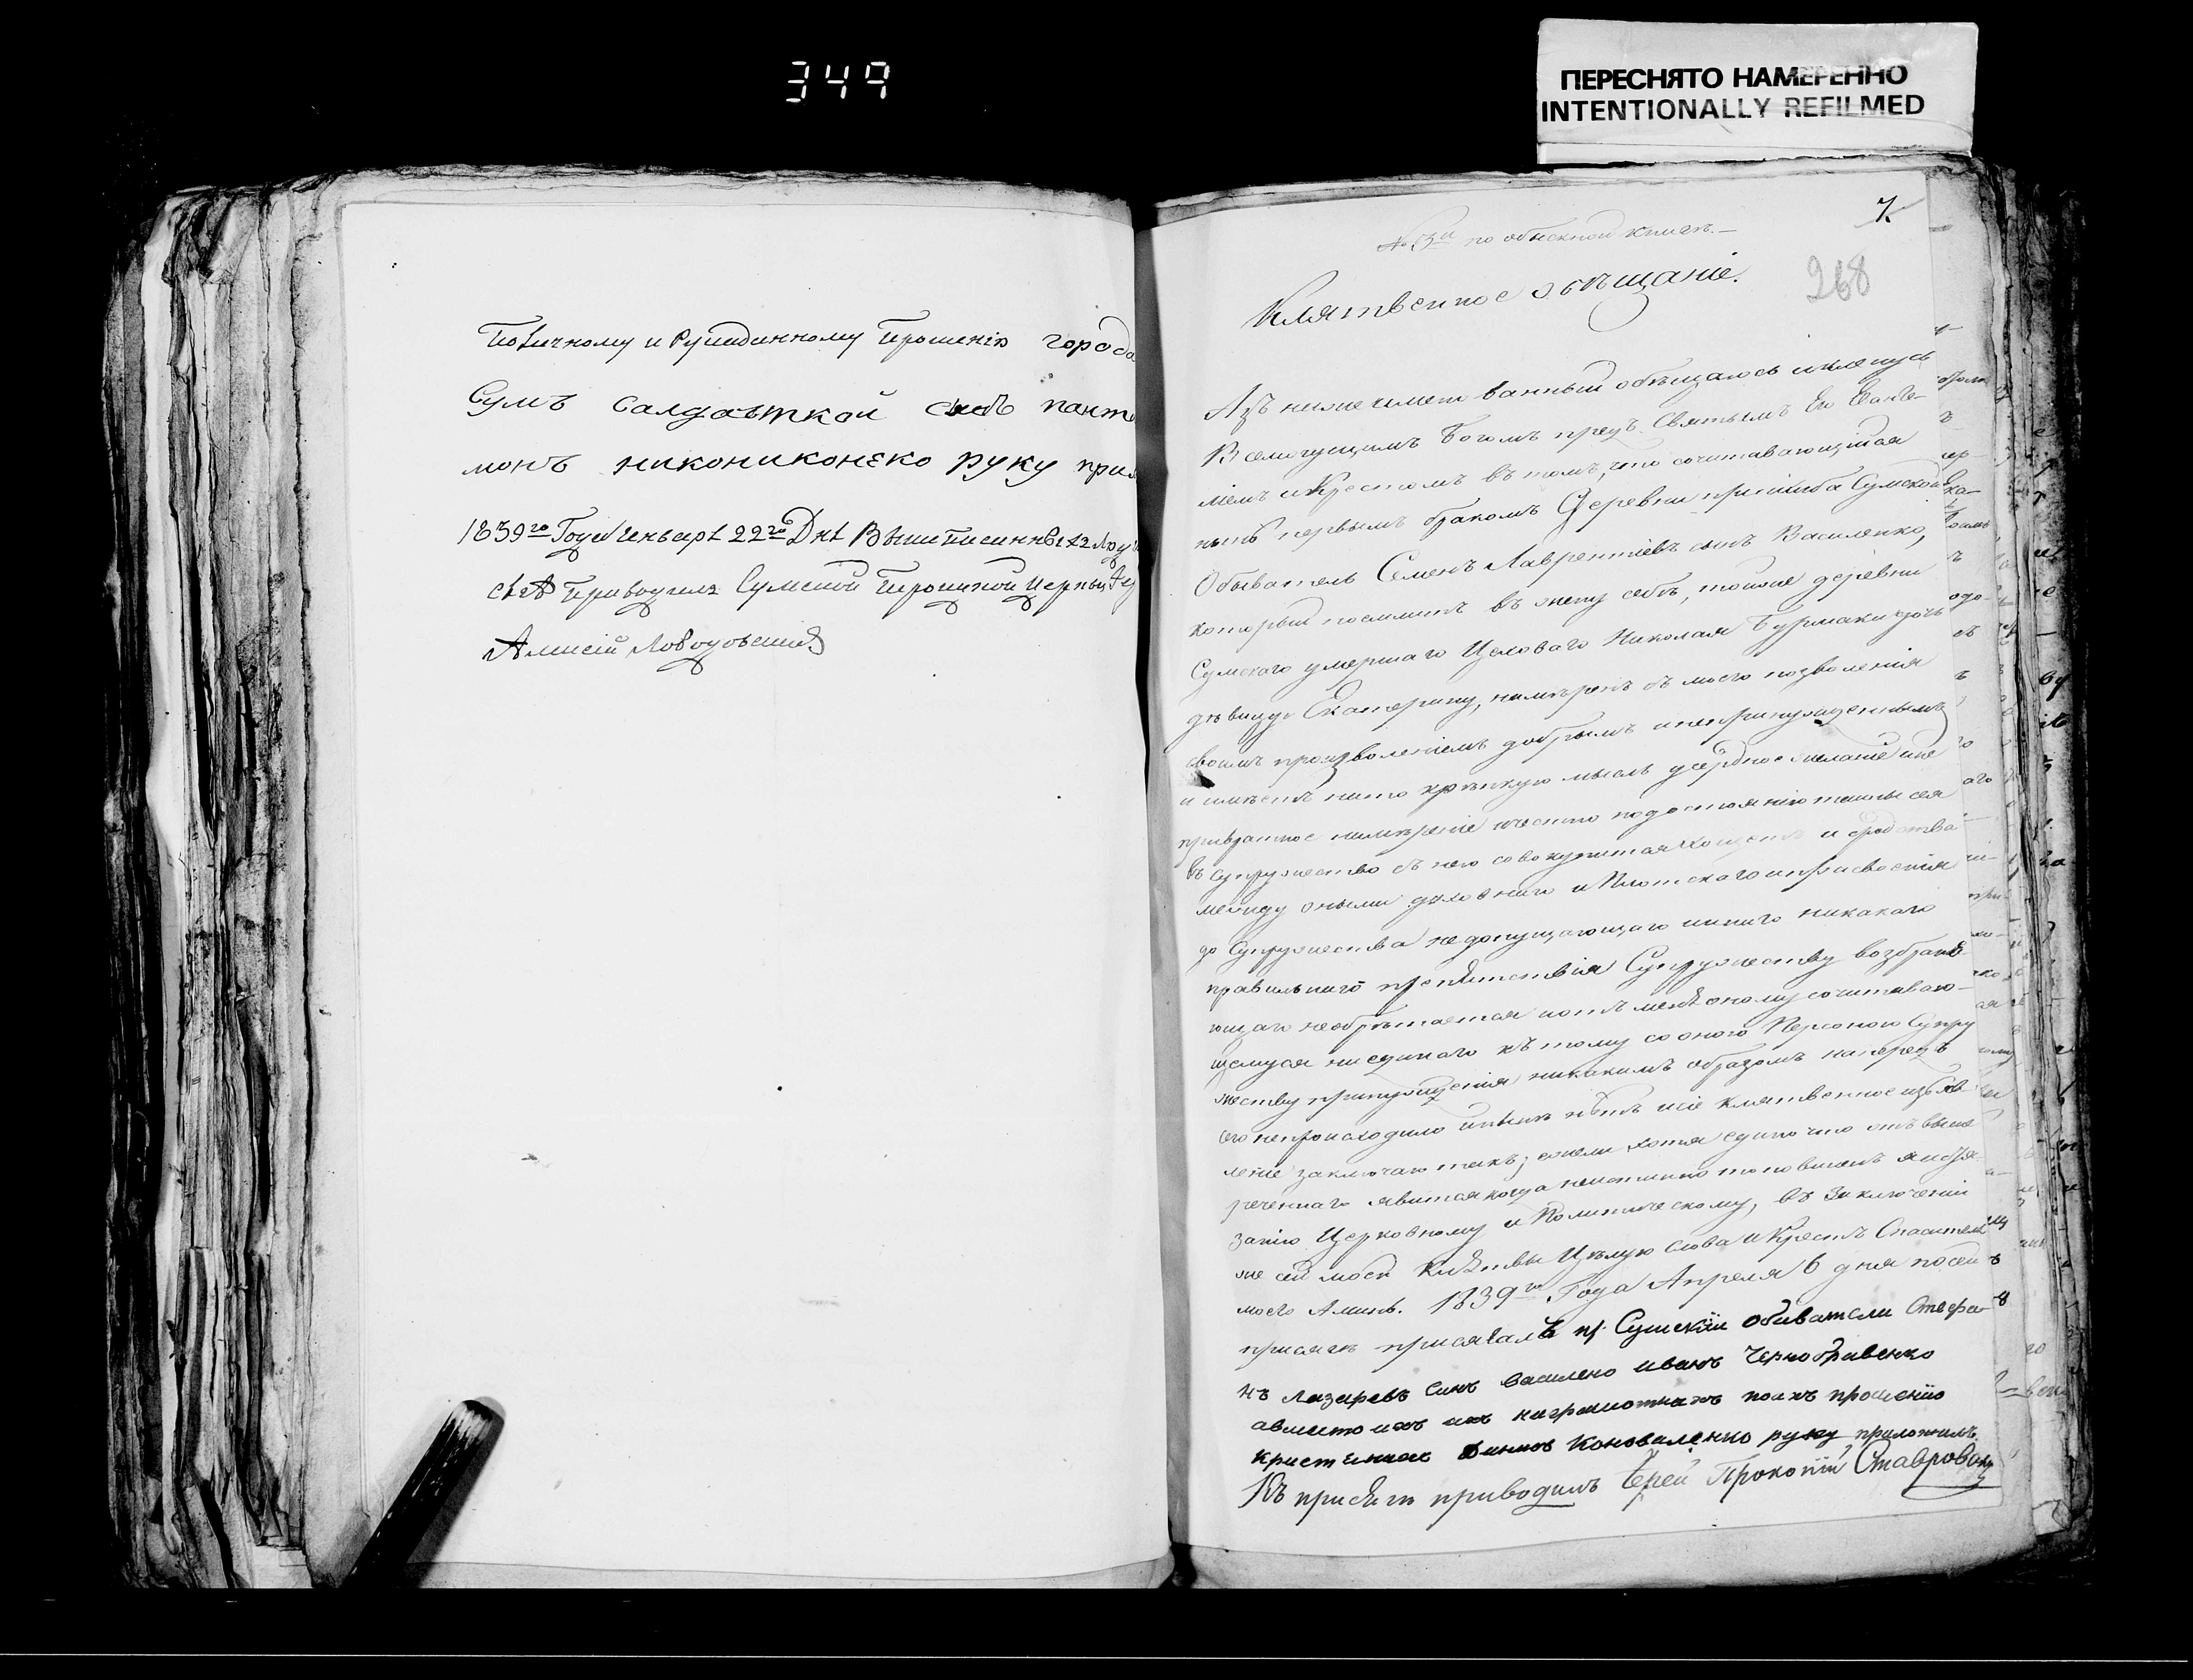 349
ПЕРЕСНЯТО НАМЕРЕННО
INTENTIONALLY REFILMED
прошенію города
Сумъ Салдатткой сынъ панте
монъ никониконеко руку прил
1839го Года Генваря 22го Дня
приводилъ Сумской Троицкой Церкви
Алексій
7.
№ 3й по обыскной книгѣ.—
268
Клятвенное обѣщаніе.
Азъ нижеименованный обѣщаюсь и кленусь
Всемогущимъ Богомъ предъ Святымъ Его Еванге-
ліемъ и Крестомъ въ томъ, что сочитавающійся
нынѣ первымъ бракомъ Деревни Сумской
Обыватель Семенъ Лаврентіевъ сынъ Василенко,
который поемлетъ въ жену себѣ, тойже деревни
Сумскаго умершаго Цеховаго Николая Бурмаки дочь
дѣвицу Екатерину, намѣренъ съ моего позволенія
своимъ произволеніемъ добрымъ и непринужденнымъ
и имѣетъ на то крѣпкую мысль усердное желаніе и не
превратное намѣреніе честно по достоянію тайны сея
въ супружество съ нею совокупится и сродства
между оными духовнаго и Плотскаго и присвоенія
до Супружества недопущающаго инного никакаго
правильнаго препятствія Супружеству возбраня
ющаго необрѣтается и отъ мене оному сочитаваю-
щемуся ни единаго къ тому со оною Персоною Супру
жеству принужденія никакимъ образомъ напередъ
сего непроисходило и нынѣ нѣтъ и сіе клятвенное изъяв
леніе заключаю такъ, ежели хотя едино что отъ выше
реченнаго явится когда неистинно то повиненъ я
занію Церковному и Политическому, въ Заключеніи
же сей моей клятвы Цѣлую слова и Крестъ Спасителя
моего Аминь. 1839го Года Апреля 6 дня по сей
присягѣ присягалъ Сумскіи обиватели Стефа
нъ Лазаревъ синъ Василено иванъ Чернобривенко
авместо ихъ неграмотнахъ поихъ прошению
Коноваленко руку приложилъ
Къ присягѣ приводилъ Іерей Прокопій Ставровскій